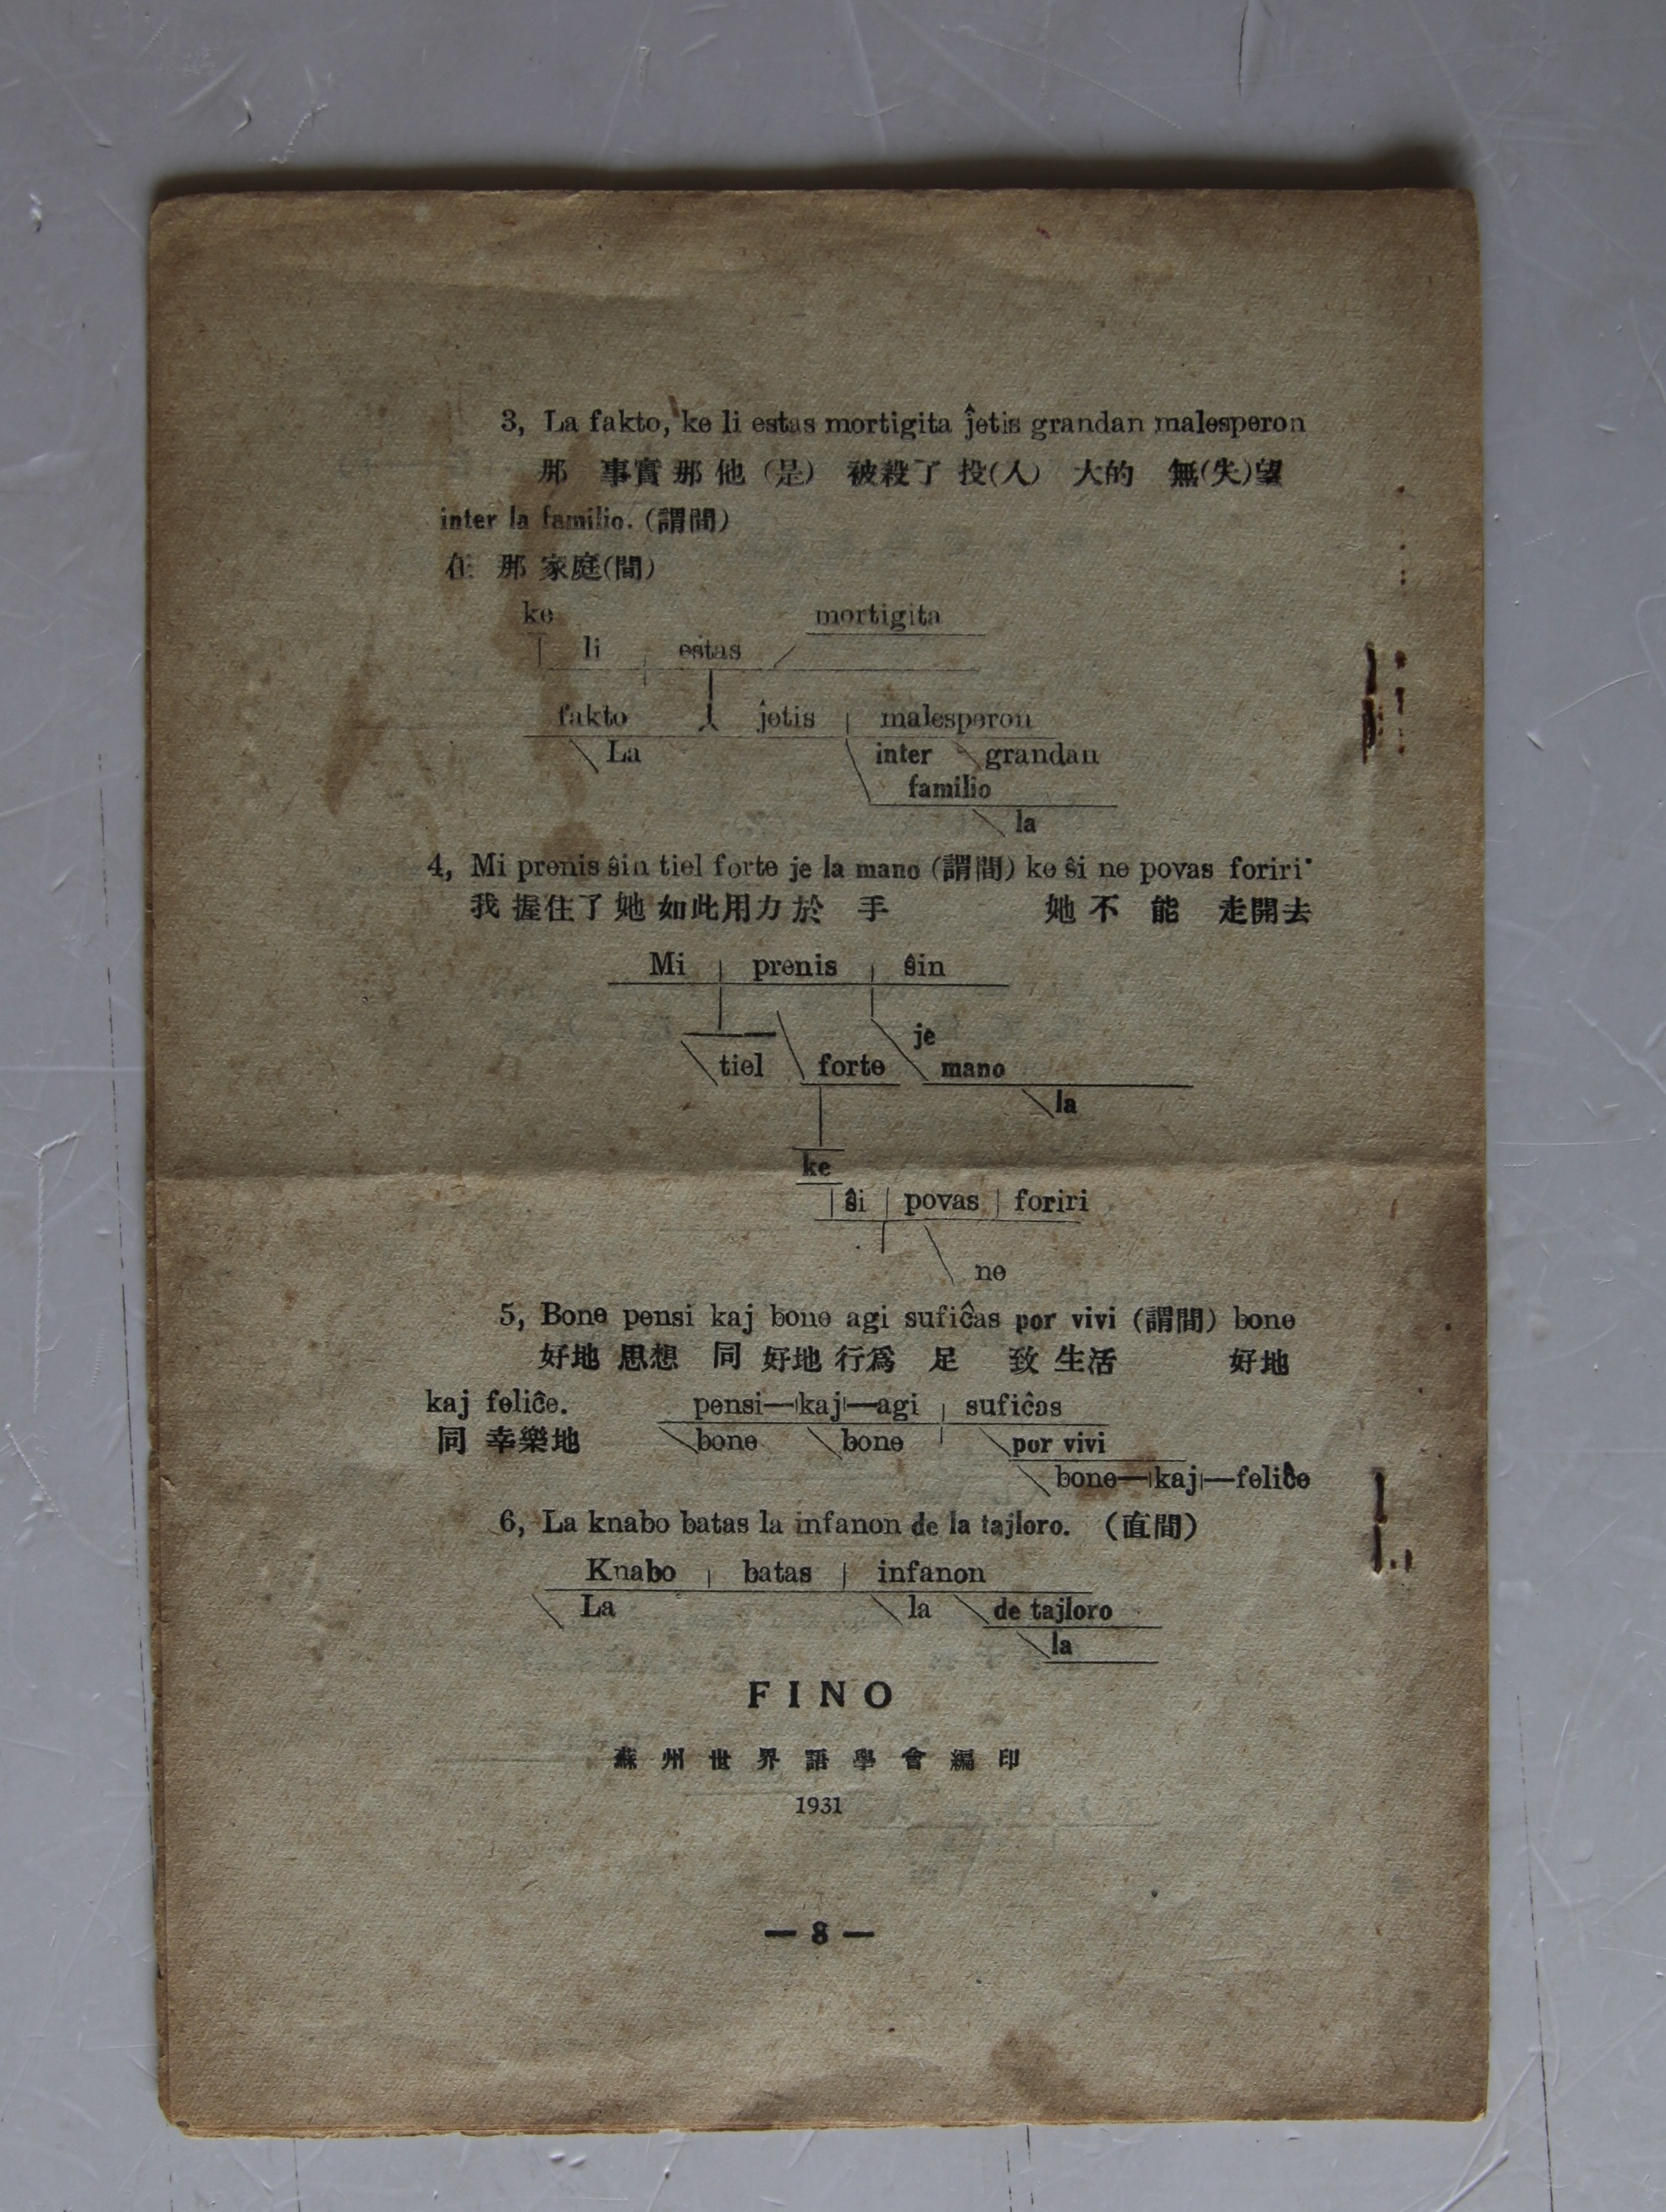 3, La fakto, ke li estas mortigita ĵetis grandan malesperon
那 事實 那 他 (是) 被殺了 投(入) 大的 無(失)望
inter la familio. (謂間)
在 那 家庭(間)
ke mortigita
li estas
fakto ĵetis malesperon
La inter grandan
familio
la
4, Mi prenis ŝin tiel forte je la mano (謂間) ke ŝi ne povas foriri
我 握住了 她 如此用力 於 手 她 不 能 走開去
Mi prenis ŝin
je
tiel forte mano
la
ke
ŝi povas foriri
ne
5, Bone pensi kaj bone agi sufiĉas por vivi (謂間) bone
好地 思想 同 好地 行爲 足 致 生活 好地
kaj feliĉe. pensi—kaj—agi sufiĉas
同 幸樂地 bone bone por vivi
bone—kaj—feliĉe
6, La knabo batas la infanon de la tajloro. (直間)
Knabo batas infanon
La la de tajloro
la
FINO
蘇州世界語學會編印
1931
— 8 —